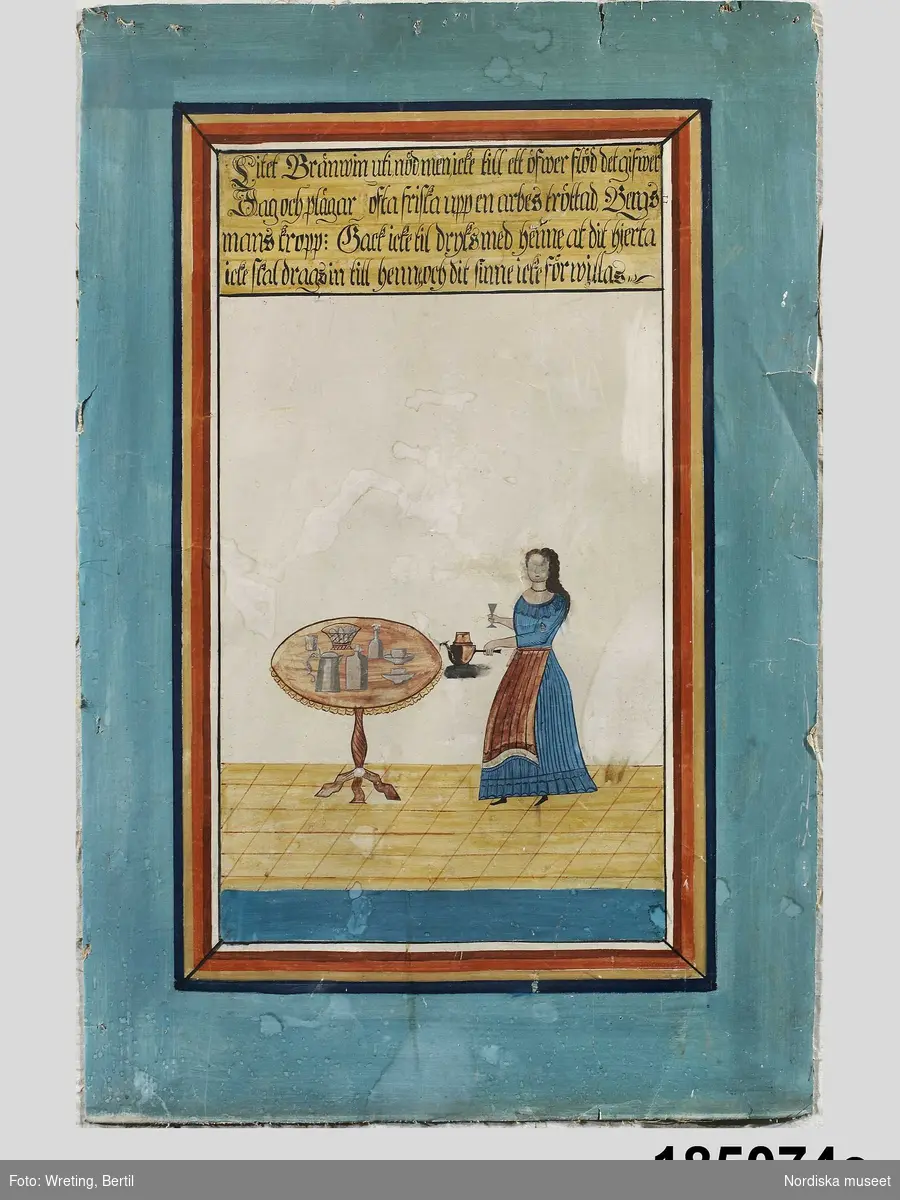 Litet Bränwin uti nöd men icke till ett öfwer flöd det gifwer
Jag och plägar ofta friska upp en arbes tröttad Bergs-
mans kropp: Gack icke til dryks med henne at dit hjerta
icke skal dragas in till henne, och dit sinne icke förwillas.
Foto: Wreting, Bertil
Nordiska museet